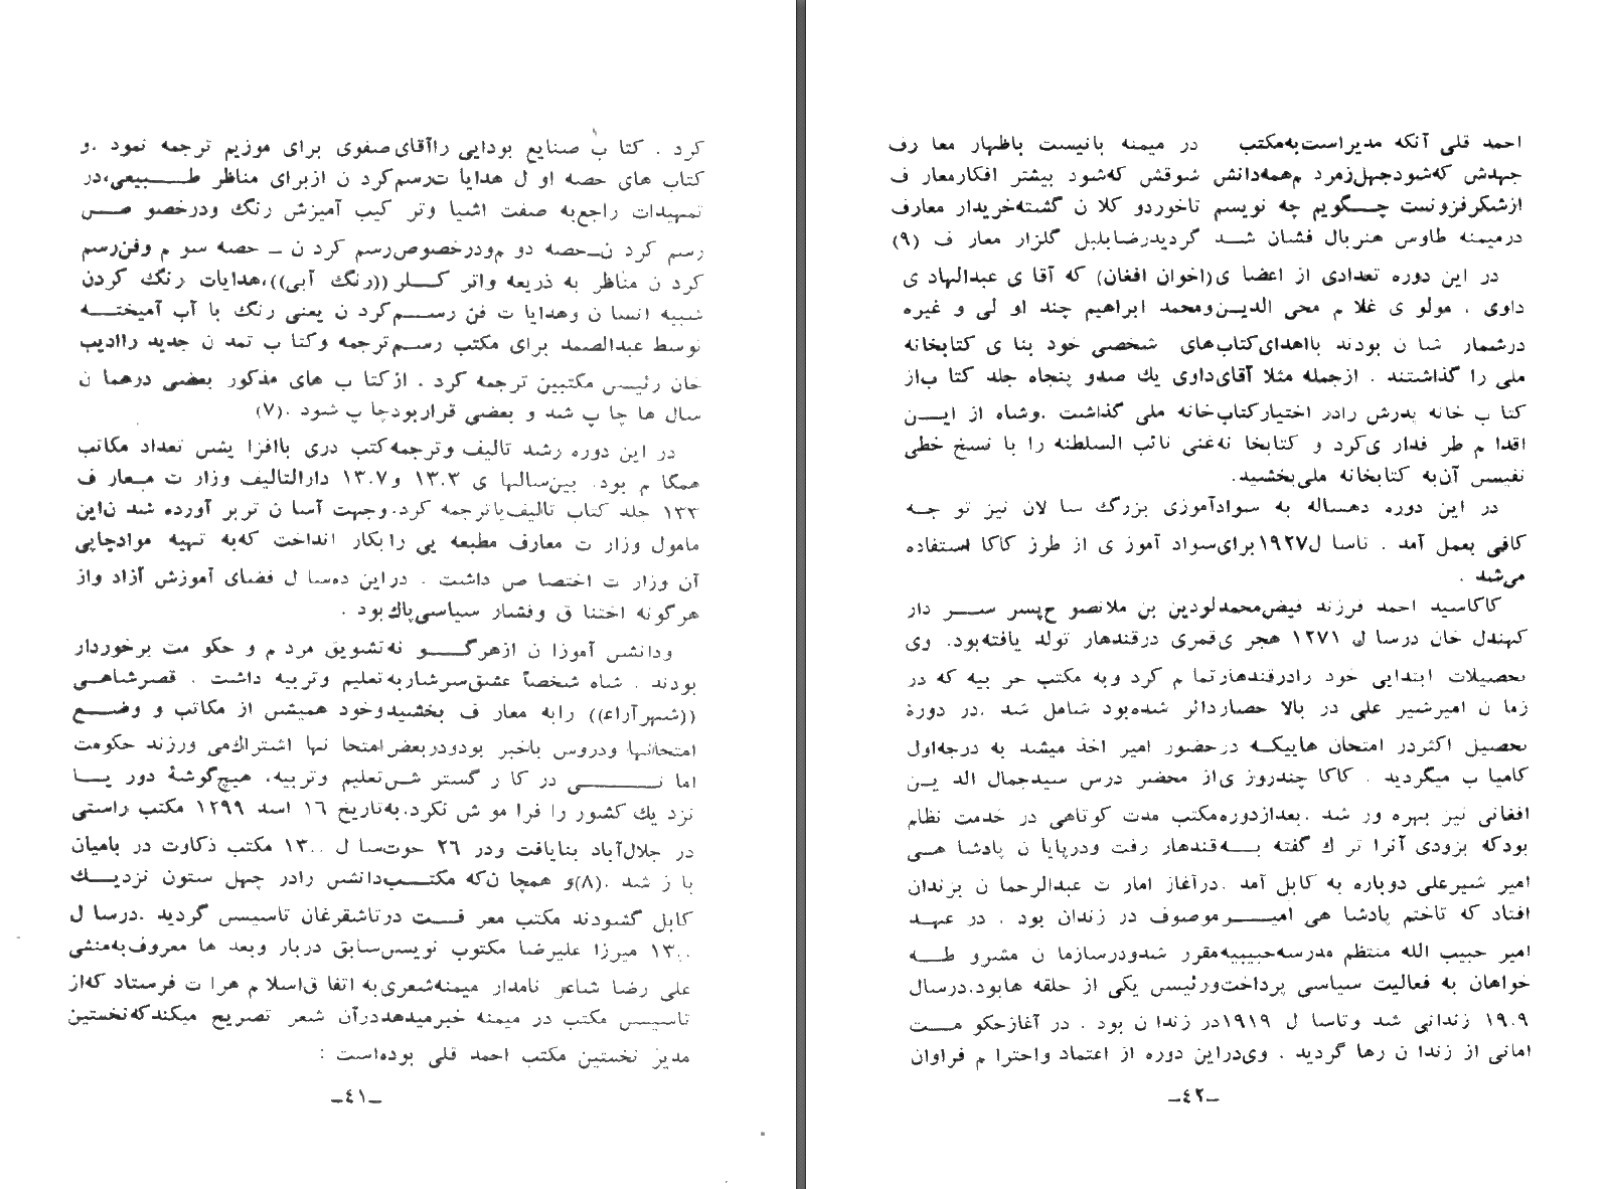 کرد . کتاب صنایع بودایی راآقای صفوی برای موزیم ترجمه نمود .و
کتاب های حصه اول هدایات رسم کردن ازبرای مناظر طبیعی،در
تمهیدات راجع به صفت اشیا وترکیب آمیزش رنگ ودرخصوص
رسم کردن ــ حصه دوم ودرخصوص رسم کردن ــ حصه سوم وفن رسم
کردن مناظر به ذریعه واتر کلر ((رنگ آبی))،هدایات رنگ کردن
شبیه انسان وهدایات فن رسم کردن یعنی رنگ با آب آمیخته
توسط عبدالصمد برای مکتب رسم ترجمه وکتاب تمدن جدید راادیب
خان رئیس مکتبین ترجمه کرد . ازکتاب های مذکور بعضی درهمان
سال ها چاپ شد و بعضی قراربودچاپ شود .(۷)
در این دوره رشد تالیف وترجمه کتب دری باافزایش تعداد مکاتب
همگام بود. بین سالهای ۱۳۰۳ و۱۳۰۷ دارالتالیف وزارت معارف
۱۳۳ جلد کتاب تالیف یاترجمه کرد.وجهت آسان تربر آورده شدن این
مامول وزارت معارف مطبعه یی رابکار انداخت که به تهیه موادچاپی
آن وزارت اختصاص داشت . دراین ده سال فضای آموزش آزاد واز
هرگونه اختناق وفشار سیاسی پاک بود .
ودانش آموزان ازهرگونه تشویق مردم و حکومت برخوردار
بودند . شاه شخصاً عشق سرشاربه تعلیم وتربیه داشت . قصرشاهی
((شهرآراء)) رابه معارف بخشیدوخود همیش از مکاتب و وضع
امتحانها ودروس باخبر بودودربعض امتحانها اشتراک می ورزند حکومت
امانی در کار گسترش تعلیم وتربیه، هیچ گوشهٔ دور یا
نزدیک کشور را فراموش نکرد.به تاریخ ۱٦ اسد ۱۲۹۹ مکتب راستی
در جلال آباد بنایافت ودر ۲٦ حوت سال ۱۳۰۰ مکتب ذکاوت در بامیان
باز شد .(۸)و همچنان که مکتب دانش رادر چهل ستون نزدیک
کابل گشودند مکتب معرفت درتاشقرغان تاسیس گردید .درسال
۱۳۰۰ میرزا علیرضا مکتوب نویس سابق دربار وبعد ها معروف به منشی
علی رضا شاعر نامدار میمنه شعری به اتفاق اسلام هرات فرستاد که از
تاسیس مکتب در میمنه خبرمیدهددرآن شعر تصریح میکند که نخستین
مدیر نخستین مکتب احمد قلی بوده است :
ــ٤۱ــ
احمد قلی آنکه مدیراست به مکتب در میمنه بانیست باظهار معارف
جهدش که شودجهل زمردم همه دانش شوقش که شود بیشتر افکارمعارف
ازشکرفزونست چگویم چه نویسم تاخوردو کلان گشته خریدار معارف
درمیمنه طاوس هنربال فشان شد گردیدرضابلبل گلزار معارف (۹)
در این دوره تعدادی از اعضای(اخوان افغان) که آقای عبدالهادی
داوی ، مولوی غلام محی الدین ومحمد ابراهیم چند اولی و غیره
درشمار شان بودند بااهدای کتاب های شخصی خود بنای کتابخانه
ملی را گذاشتند . ازجمله مثلا آقای داوی یک صدو پنجاه جلد کتاب از
کتاب خانه پدرش رادر اختیارکتاب خانه ملی گذاشت .وشاه از این
اقدام طرفداری کرد و کتابخانه غنی نائب السلطنه را با نسخ خطی
نفیس آن به کتابخانه ملی بخشید.
در این دوره دهساله به سوادآموزی بزرگ سالان نیز توجه
کافی بعمل آمد . تاسال ۱۹۲۷برای سواد آموزی از طرز کاکا استفاده
می شد .
کاکاسید احمد فرزند فیض محمدلودین بن ملانصوح پسر سردار
کهندل خان درسال ۱۲۷۱ هجری قمری درقندهار تولد یافته بود. وی
تحصیلات ابتدایی خود رادرقندهارتمام کرد وبه مکتب حربیه که در
زمان امیرشیر علی در بالا حصاردائر شده بود شامل شد .در دورهٔ
تحصیل اکثردر امتحان هاییکه درحضور امیر اخذ میشد به درجه اول
کامیاب میگردید . کاکا چندروزی از محضر درس سیدجمال الدین
افغانی نیز بهره ور شد .بعدازدوره مکتب مدت کوتاهی در خدمت نظام
بودکه بزودی آنرا ترک گفته به قندهار رفت ودرپایان پادشاهی
امیر شیرعلی دوباره به کابل آمد .درآغاز امارت عبدالرحمان بزندان
افتاد که تاختم پادشاهی امیرموصوف در زندان بود . در عهد
امیر حبیب الله منتظم مدرسه حبیبیه مقرر شدودرسازمان مشروطه
خواهان به فعالیت سیاسی پرداخت ورئیس یکی از حلقه هابود.درسال
۱۹۰۹ زندانی شد وتاسال ۱۹۱۹در زندان بود . در آغازحکومت
امانی از زندان رها گردید . وی دراین دوره از اعتماد واحترام فراوان
ــ٤۲ــ